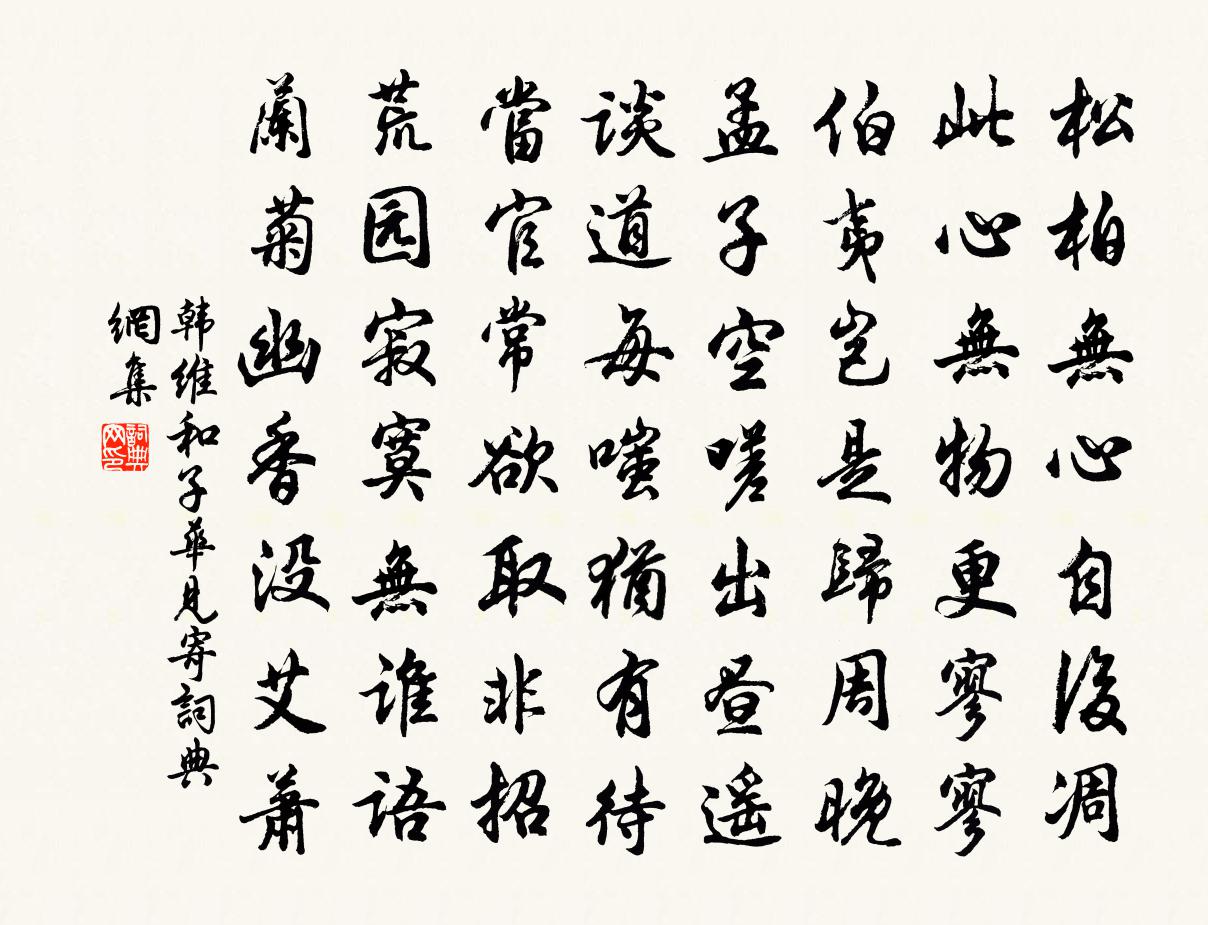 松柏無心自後凋
此心無物更寥寥
伯夷岂是歸周晚
孟子空嗟出昼遥
談道每嗤猶有待
當官常欲取非招
荒园寂寞無谁語
蘭菊幽香没艾蕭
韩維和子華見寄詞典
網集
詞典网印